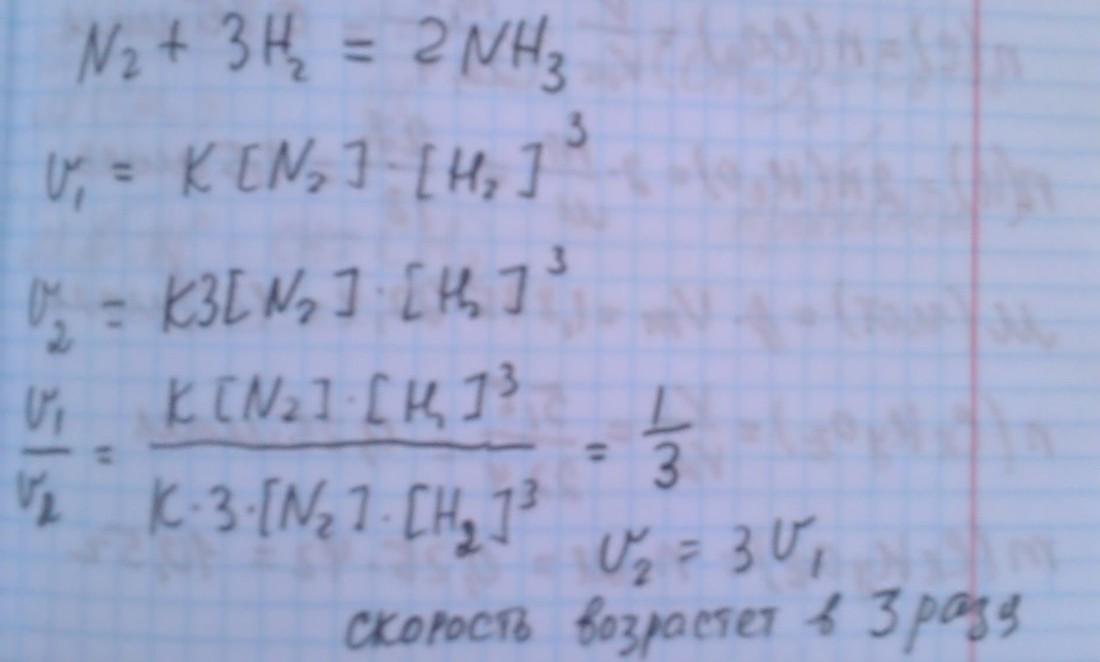 N₂ + 3H₂ = 2NH₃
v₁ = K[N₂]·[H₂]³
v₂ = K3[N₂]·[H₂]³
v₁/v₂ = K[N₂]·[H₂]³ / K·3·[N₂]·[H₂]³ = 1/3
v₂ = 3v₁
скорость возрастет в 3 раза